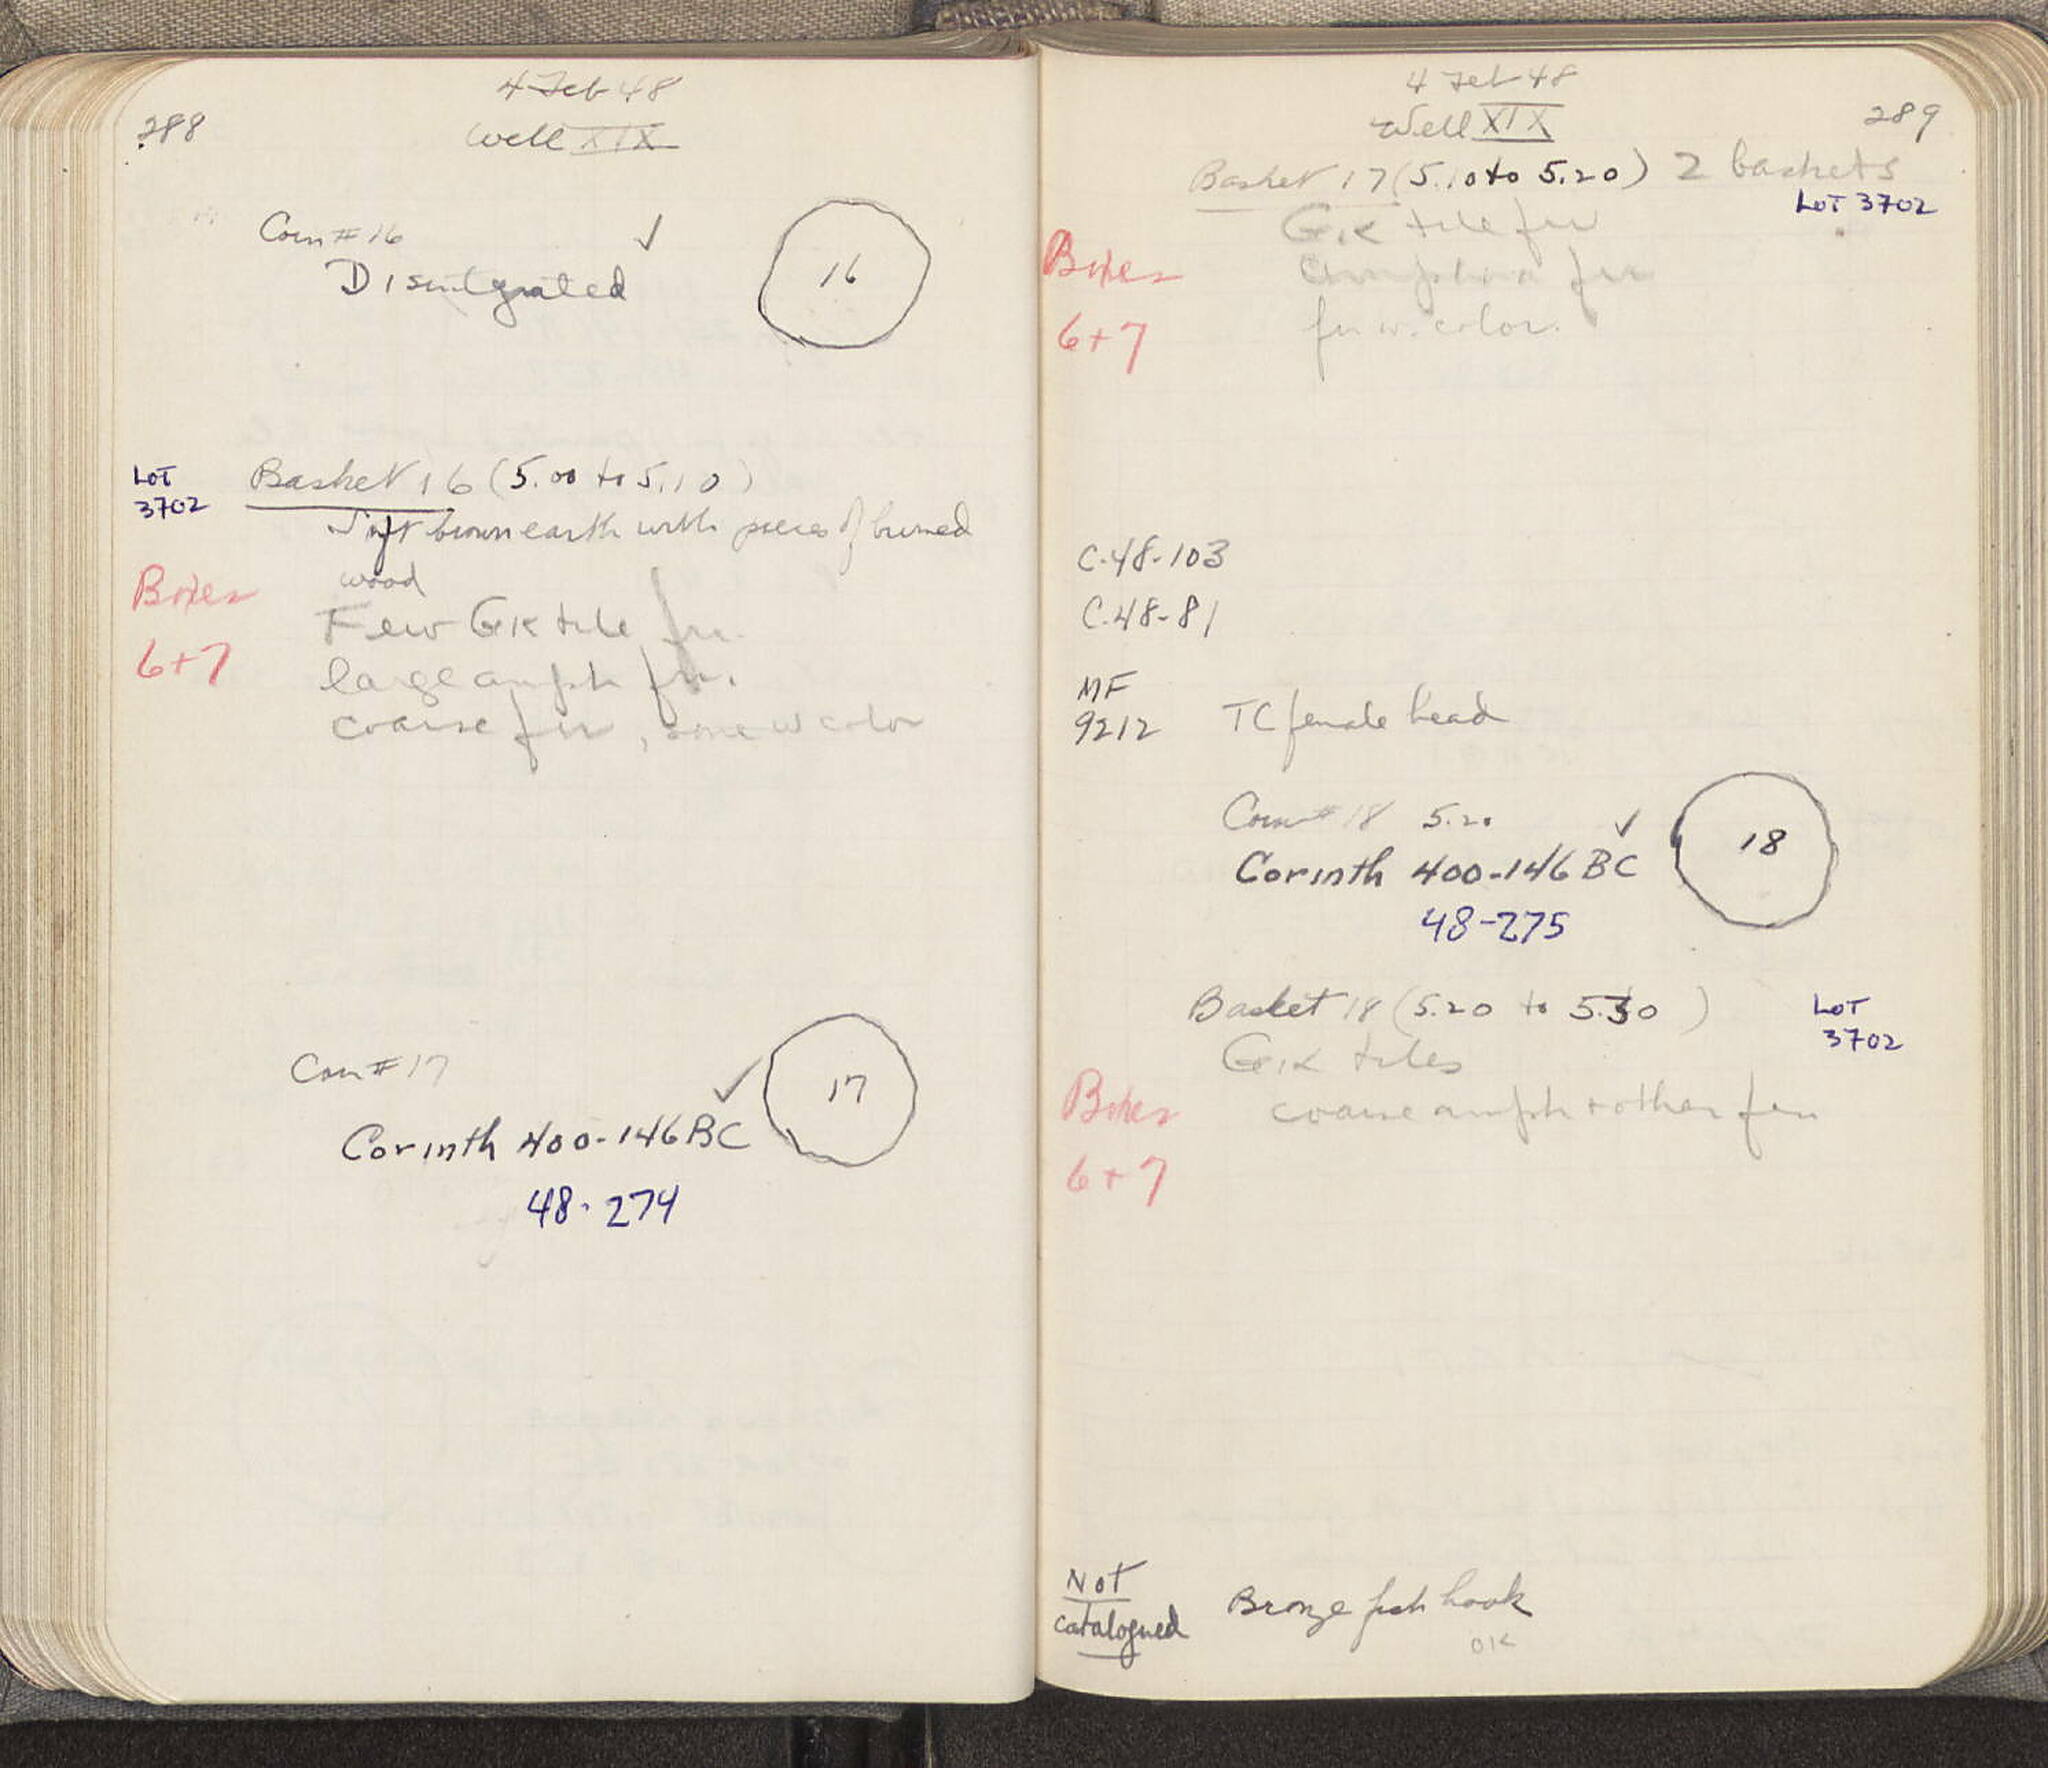 288
4 Feb 48
Well XIX
Coin # 16 ✓
Disintegrated
16
LOT
3702
Basket 16 (5.00 to 5.10)
Soft brown earth with pieces of burned
wood
Boxes
6+7
Few GK tile frr.
large amph frr.
coarse frr, some w color
Coin # 17 ✓
17
Corinth 400-146 BC
48-274
4 Feb 48
Well XIX
289
Basket 17 (5.10 to 5.20) 2 baskets
LOT 3702
GK tile frr
Amphora frr
frr w. color.
Boxes
6+7
C.48-103
C.48-81
MF
9212 TC female head
Coin # 18 5.20 ✓
18
Corinth 400-146 BC
48-275
Basket 18 (5.20 to 5.30)
LOT
3702
GK tiles
coarse amph + other frr
Boxes
6+7
Not
catalogued
Bronze fish hook
OK